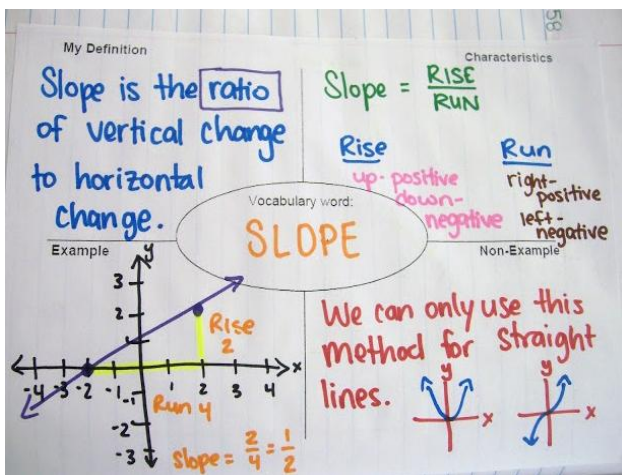 58
My Definition
Slope is the ratio
of vertical change
to horizontal
change.
Characteristics
Slope = RISE/RUN
Rise
up- positive
down-
negative
Run
right-
positive
left-
negative
Vocabulary word:
SLOPE
Example
y
3
2
1
-4 -3 -2 -1 1 2 3 4 x
-1
-2
-3
Rise
2
Run 4
Slope = 2/4 = 1/2
Non-Example
We can only use this
method for straight
lines.
y
x
y
x